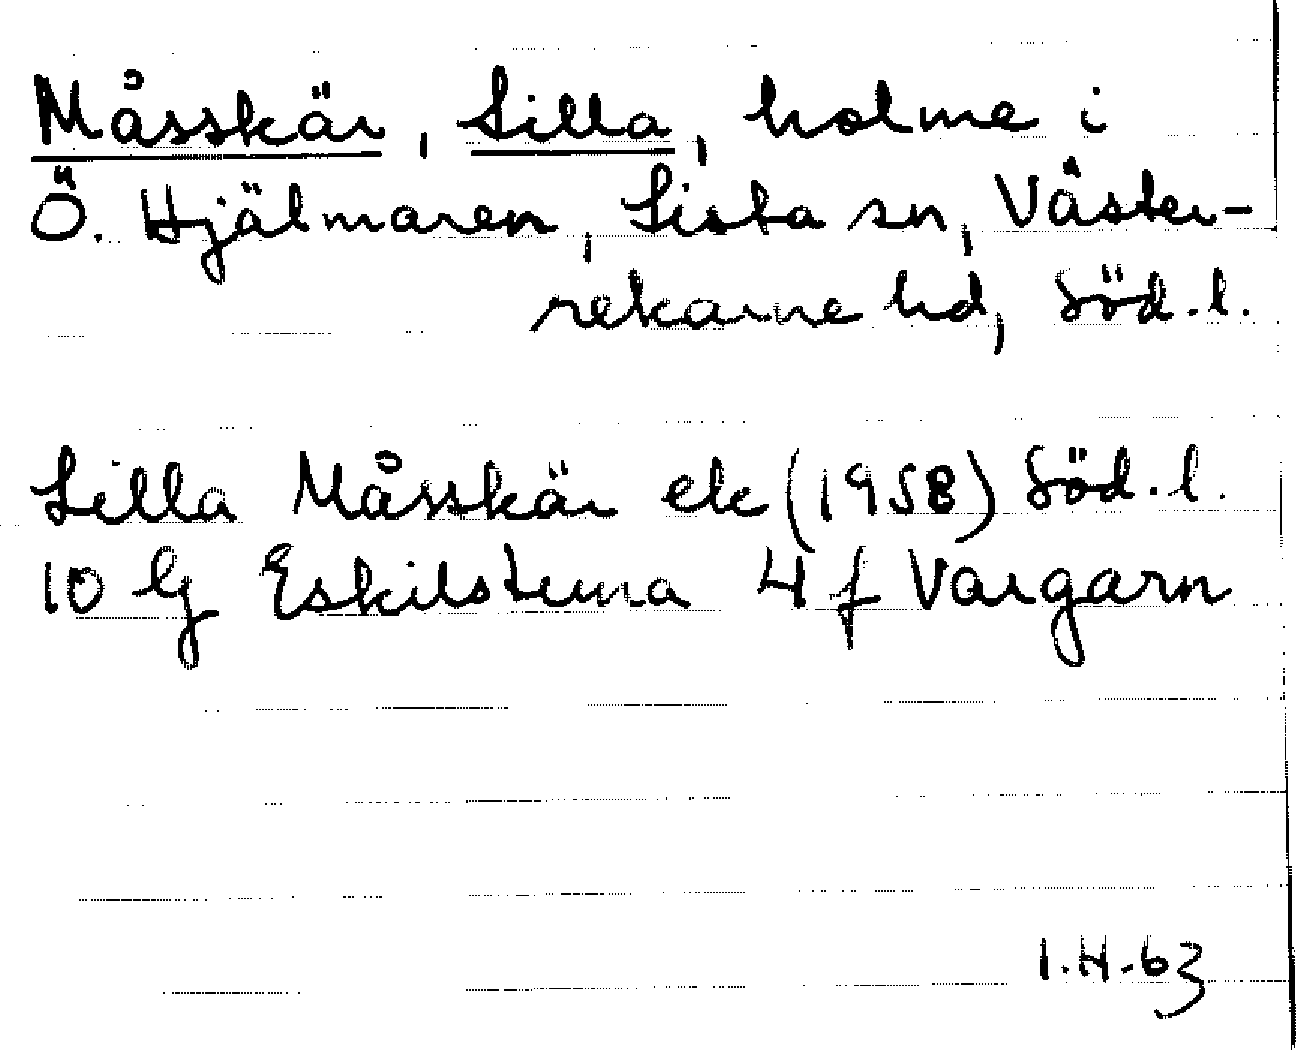 Måsskär, Lilla, holme i
Ö. Hjälmaren, Lista sn, Väster-
rekarne hd, Söd.l.
Lilla Måsskär ek (1958) Söd.l.
10 G Eskilstuna 4 f Vargarn
I.H.63